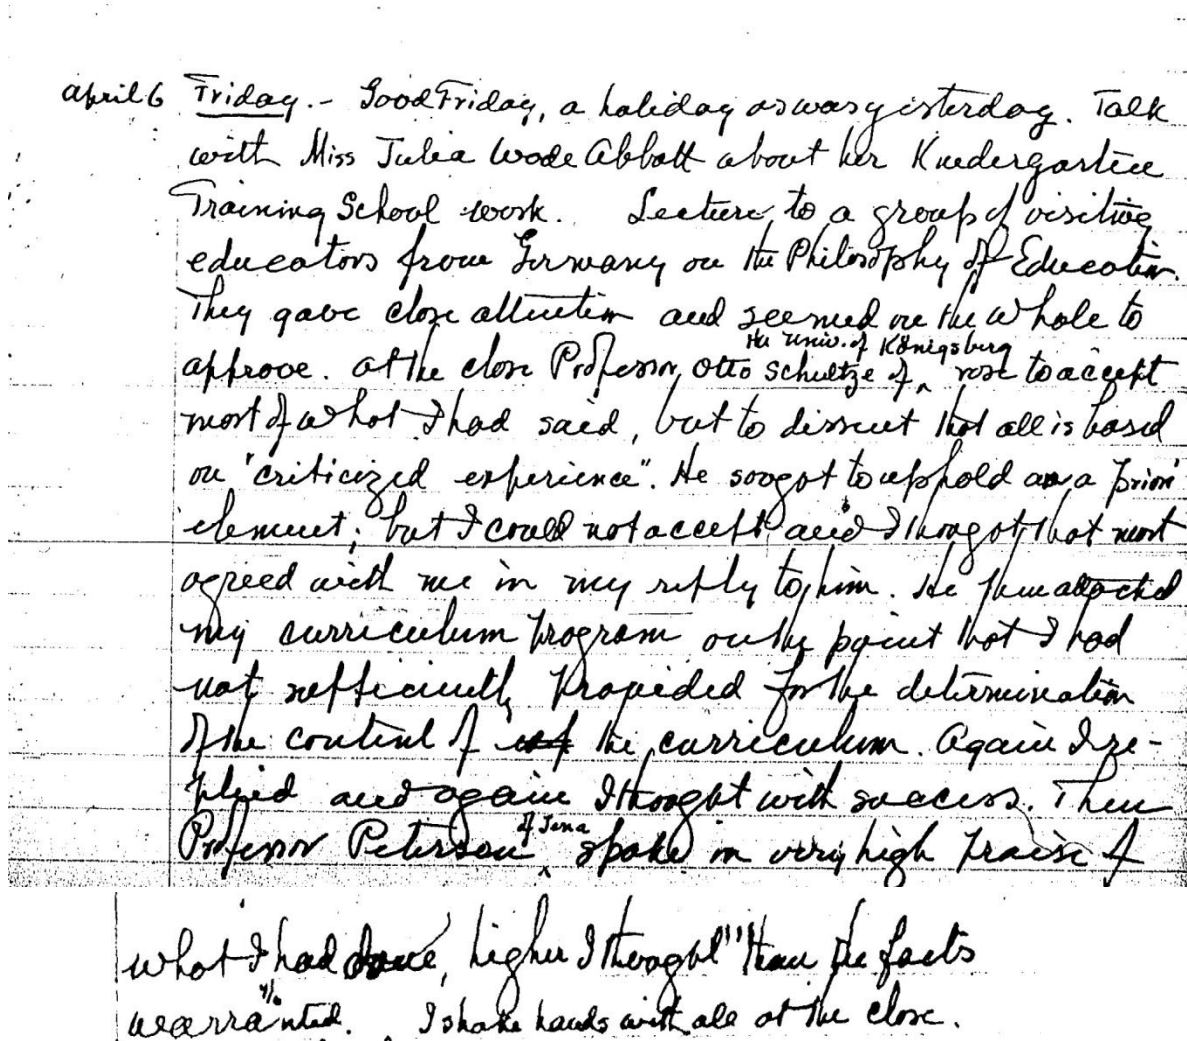 April 6 Friday. - Good Friday, a holiday as was yesterday. Talk
with Miss Julia Wade Abbott about her Kindergarten
Training School work. Lecture to a group of visiting
educators from Germany on the Philosophy of Education.
They gave close attention and seemed on the whole to
the Univ. of Königsberg
approve. At the close Professor Otto Schultze of ^ rose to accept
most of what I had said, but to dissent that all is based
on "criticized experience". He sought to uphold an a priori
element; but I could not accept and I thought that most
agreed with me in my reply to him. He then attacked
my curriculum program on the point that I had
not sufficiently provided for the determination
of the content of the curriculum. Again I re-
plied and again I thought with success. Then
of Jena
Professor Peterson ^ spoke in very high praise of
what I had done, higher I thought than the facts
warranted. I shake hands with all at the close.